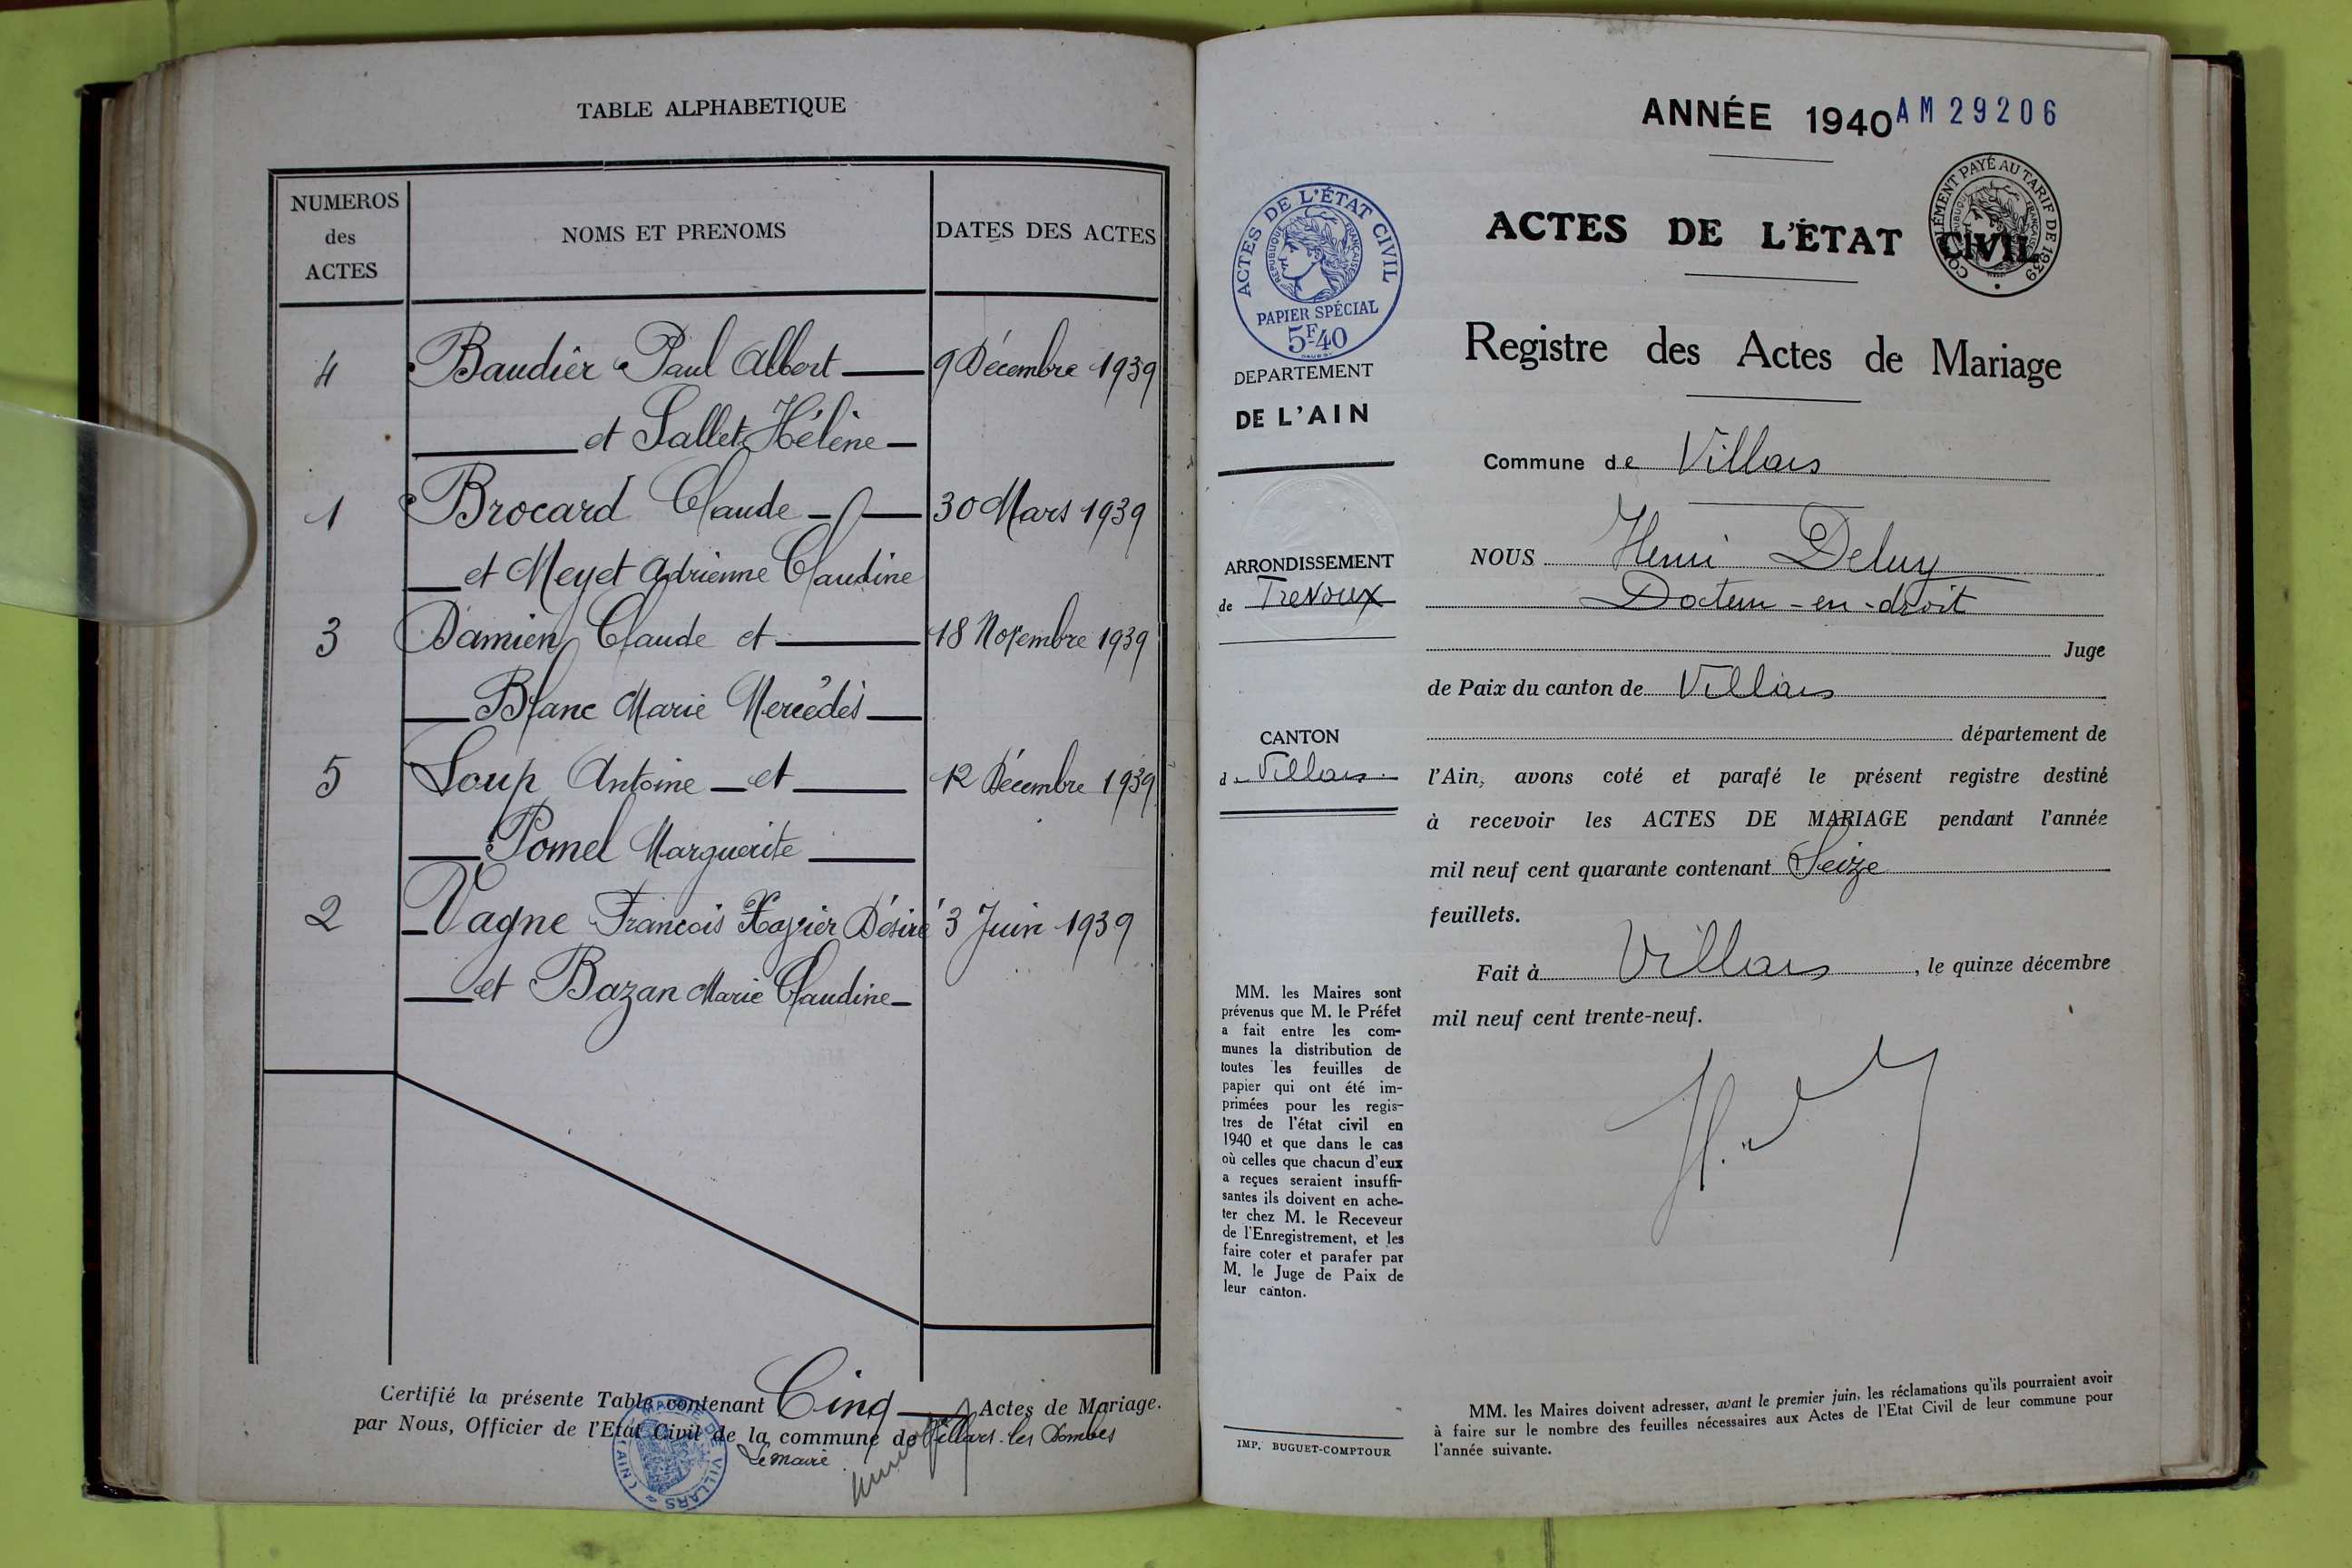 TABLE ALPHABETIQUE
NUMEROS
des
ACTES
NOMS ET PRENOMS
DATES DES ACTES
4 Baudier Paul Albert 9 Décembre 1939
et Sallet Hélène
1 Brocard Claude 30 Mars 1939
et Meyet Adrienne Claudine
3 Damien Claude et 18 Novembre 1939
Blanc Marie Mercédès
5 Loup Antoine et 12 Décembre 1939
Pomel Marguerite
2 Vagne François Xavier Désiré 3 Juin 1939
et Bazan Marie Claudine
Certifié la présente Table contenant Cinq Actes de Mariage.
par Nous, Officier de l'Etat Civil de la commune de Villars-les Dombes
Le maire
MAIRIE DE VILLARS (AIN)
ANNÉE 1940 AM 29206
ACTES DE L'ÉTAT CIVIL
COMPLÉMENT PAYÉ AU TARIF DE 1939
RÉPUBLIQUE FRANÇAISE
ACTES DE L'ÉTAT CIVIL
RÉPUBLIQUE FRANÇAISE
PAPIER SPÉCIAL
5F40
DEPARTEMENT
DE L'AIN
ARRONDISSEMENT
de Trévoux
CANTON
d Villars
MM. les Maires sont
prévenus que M. le Préfet
a fait entre les com-
munes la distribution de
toutes les feuilles de
papier qui ont été im-
primées pour les regis-
tres de l'état civil en
1940 et que dans le cas
où celles que chacun d'eux
a reçues seraient insuffi-
santes ils doivent en ache-
ter chez M. le Receveur
de l'Enregistrement, et les
faire coter et parafer par
M. le Juge de Paix de
leur canton.
IMP. BUGUET-COMPTOUR
Registre des Actes de Mariage
Commune de Villars
NOUS Henri Deluy
Docteur-en-droit
Juge
de Paix du canton de Villars
département de
l'Ain, avons coté et parafé le présent registre destiné
à recevoir les ACTES DE MARIAGE pendant l'année
mil neuf cent quarante contenant Seize
feuillets.
Fait à Villars, le quinze décembre
mil neuf cent trente-neuf.
MM. les Maires doivent adresser, avant le premier juin, les réclamations qu'ils pourraient avoir
à faire sur le nombre des feuilles nécessaires aux Actes de l'Etat Civil de leur commune pour
l'année suivante.